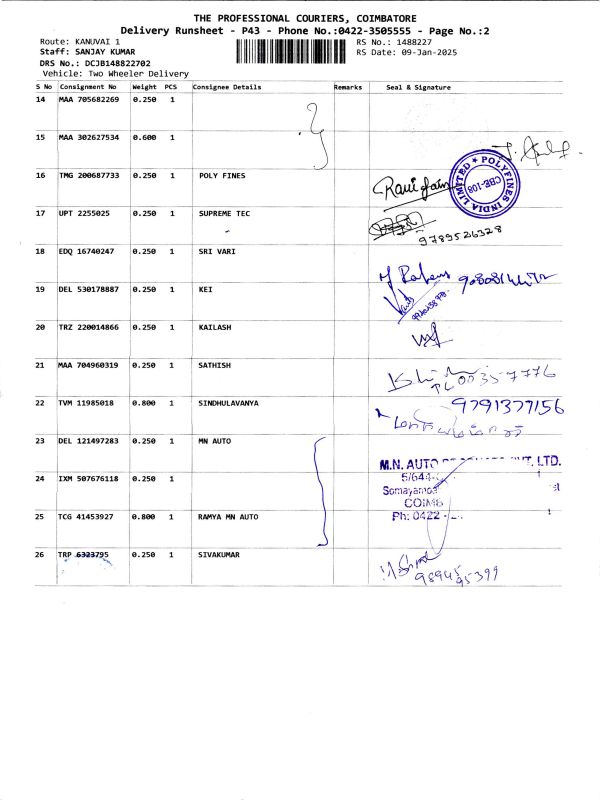 THE PROFESSIONAL COURIERS, COIMBATORE
Delivery Runsheet - P43 - Phone No.:0422-3505555 - Page No.:2
Route: KANUVAI 1
RS No.: 1488227
Staff: SANJAY KUMAR
RS Date: 09-Jan-2025
DRS No.: DCJB148822702
Vehicle: Two Wheeler Delivery
S No Consignment No Weight PCS Consignee Details Remarks Seal & Signature
14 MAA 705682269 0.250 1
15 MAA 302627534 0.600 1
16 TMG 200687733 0.250 1 POLY FINES
POLYFINES INDIA LIMITED
CBE-108
17 UPT 2255025 0.250 1 SUPREME TEC
9789526328
18 EDQ 16740247 0.250 1 SRI VARI
19 DEL 530178887 0.250 1 KEI
20 TRZ 220014866 0.250 1 KAILASH
21 MAA 704960319 0.250 1 SATHISH
22 TVM 11985018 0.800 1 SINDHULAVANYA
9791377156
23 DEL 121497283 0.250 1 MN AUTO
M.N. AUTO LTD.
24 IXM 507676118 0.250 1
5/644
25 TCG 41453927 0.800 1 RAMYA MN AUTO
Ph: 0422 -
26 TRP 6323795 0.250 1 SIVAKUMAR
9894595399